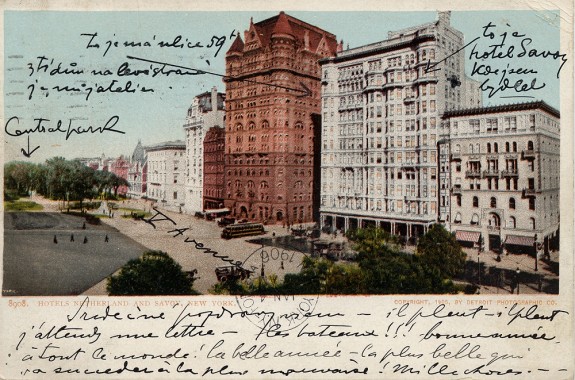 to je má ulice 59th
3tí dům na levo stranu
je můj atelier.
to je
hotel Savoy
kde jsem
bydlel
Central park
V Avenue
JAN
1906
8908. HOTELS NETHERLAND AND SAVOY, NEW YORK.
COPYRIGHT, 1905, BY DETROIT PHOTOGRAPHIC CO.
Srdečné pozdravy vám – il pleut – il pleut
j'attends une lettre – les bateaux!!! bonne année
à tout ce monde! la belle année – la plus belle qui
va succéder à la plus mauvaise! Mille choses. –